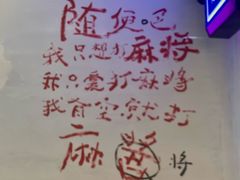 随便吧
我只想打麻将
我只爱打麻将
我有空就打
二麻
将